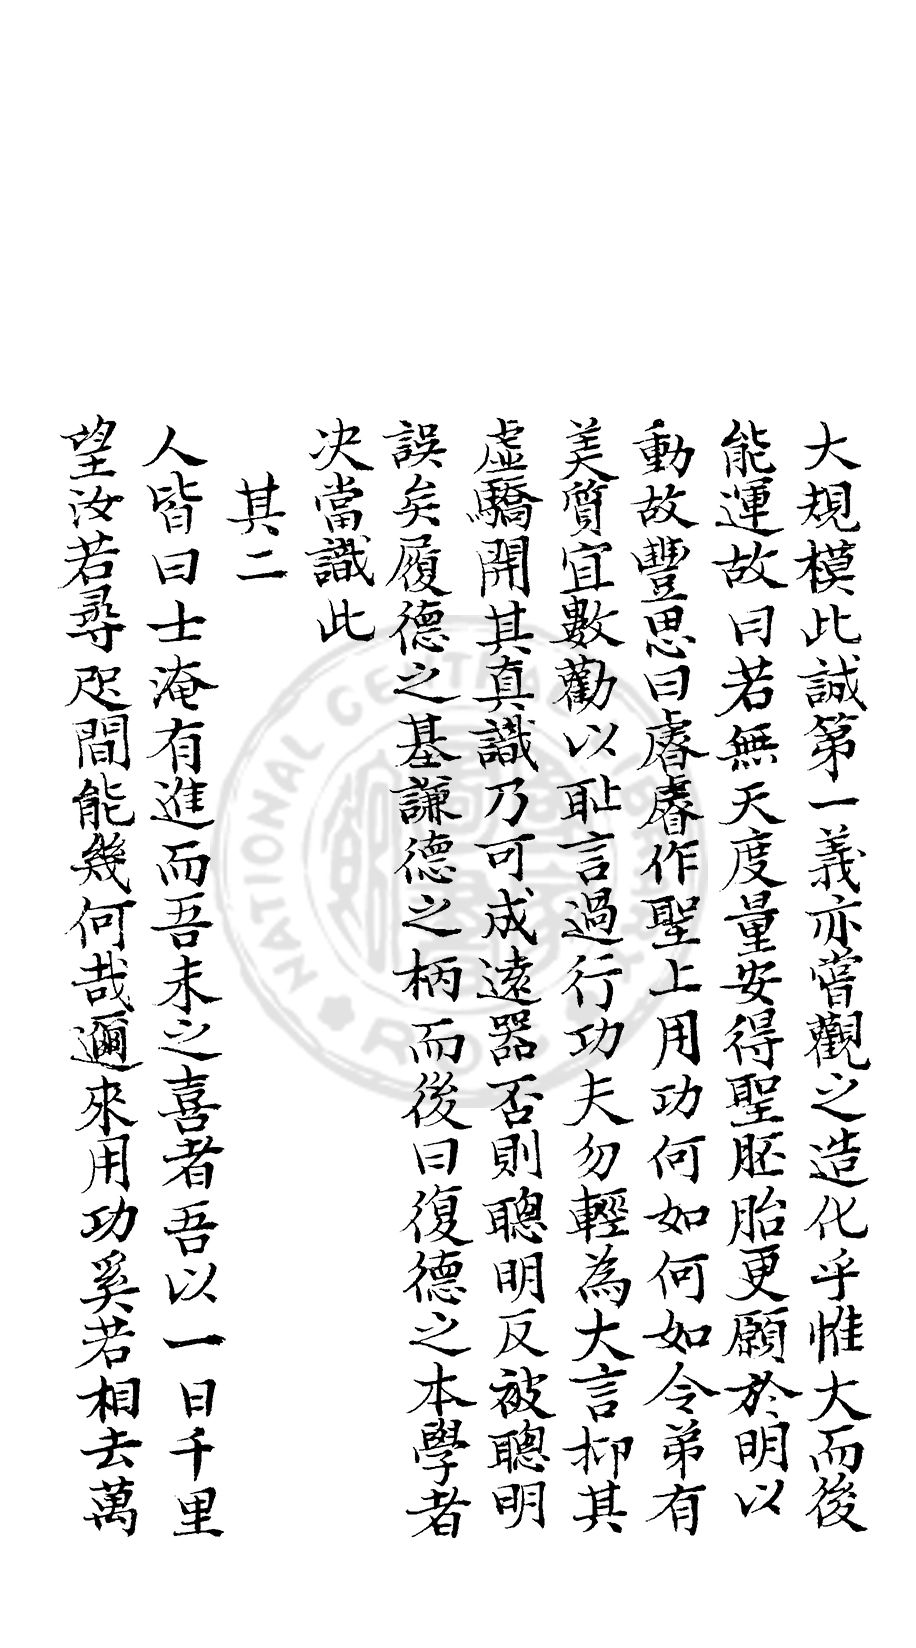 大規模此誠第一義亦嘗觀之造化乎惟大而後
能運故曰若無天度量安得聖胚胎更願於明以
動故豐思曰睿睿作聖上用功何如何如令弟有
美質宜數勸以耻言過行功夫勿輕為大言抑其
虛驕開其真識乃可成遠器否則聰明反被聰明
誤矣履德之基謙德之柄而後曰復德之本學者
决當識此
其二
人皆曰士淹有進而吾未之喜者吾以一日千里
望汝若尋咫間能幾何哉邇來用功奚若相去萬
NATIONAL CENTRAL LIBRARY
R.O.C.